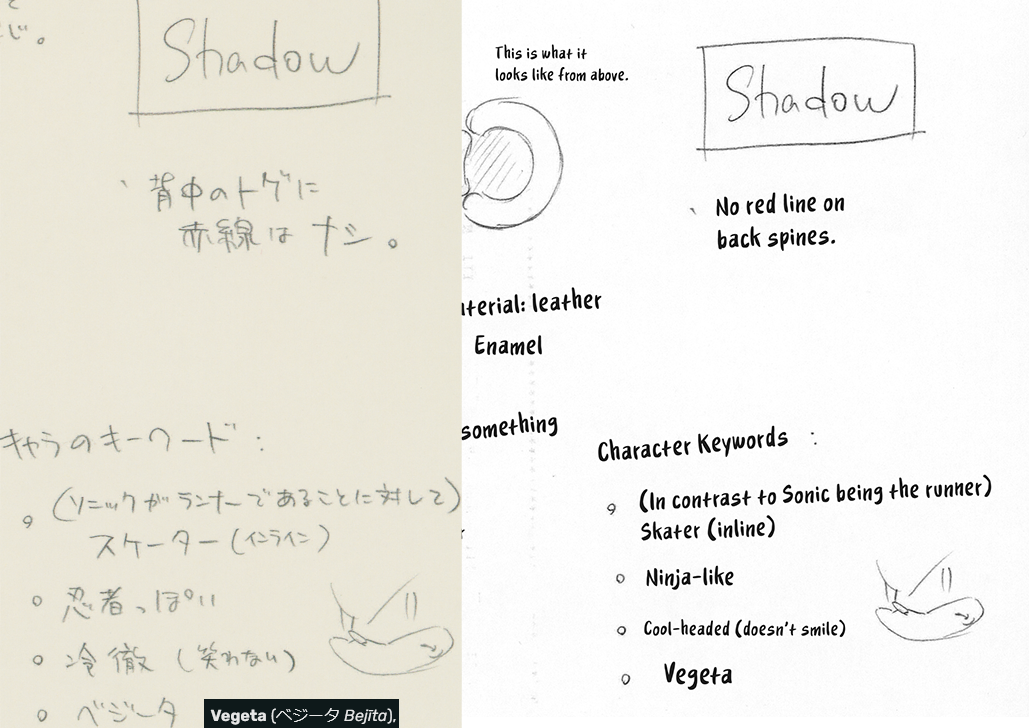 じ。
Shadow
背中のトゲに
赤線はナシ。
キャラのキーワード：
(ソニックがランナーであることに対して)
スケーター(インライン)
忍者っぽい
冷徹(笑わない)
ベジータ
Vegeta (ベジータ Bejita),
This is what it
looks like from above.
Shadow
No red line on
back spines.
aterial: leather
Enamel
something
Character Keywords :
(In contrast to Sonic being the runner)
Skater (inline)
Ninja-like
Cool-headed (doesn't smile)
Vegeta